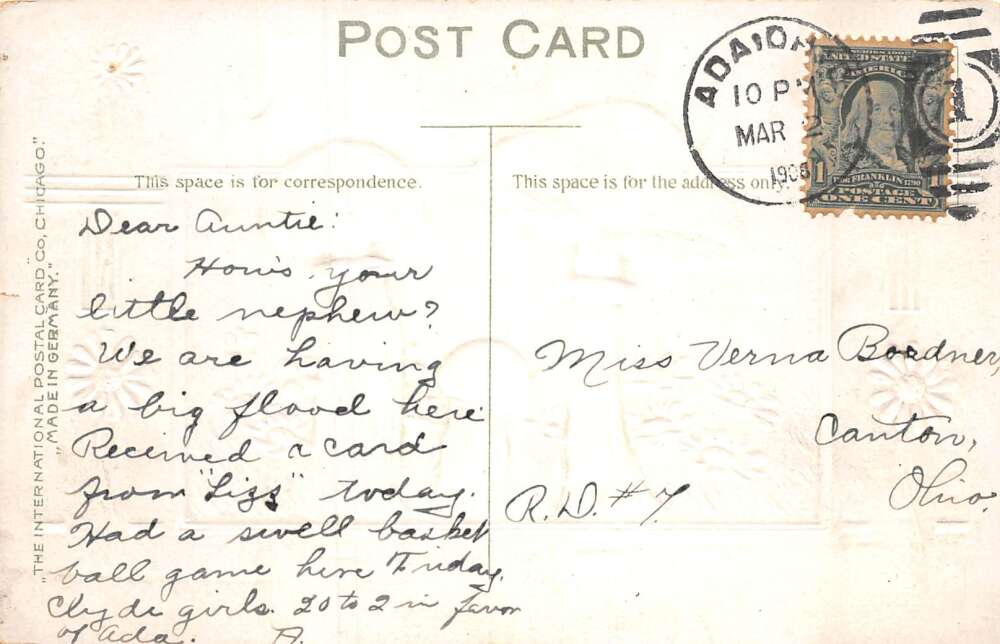 POST CARD
ADA, OH
10 P M
MAR 2
1908
UNITED STATES
AMERICA
1 FRANKLIN 1790 1
POSTAGE
ONE CENT
1
This space is for correspondence.
This space is for the address only.
Dear Auntie:
How's your
little nephew?
We are having
a big flood here
Received a card
from "Lizz" today.
Had a swell basket
ball game here Friday.
Clyde girls. 20 to 2 in favor
of Ada. A.
Miss Verna Bordner,
Canton,
Ohio.
R.D. #7.
"THE INTERNATIONAL POSTAL CARD" CO, CHICAGO."
"MADE IN GERMANY."